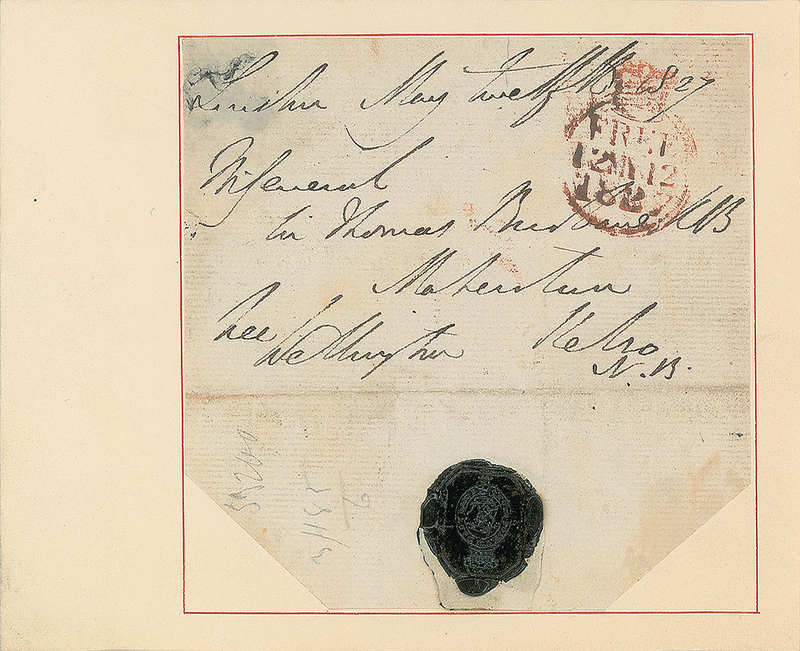 London May twelfth 1827
FREE
12 MY 12
1827
M General
Sir Thomas Brisbane KCB
Makerstoun
free
Wellington
Kelso
N.B.